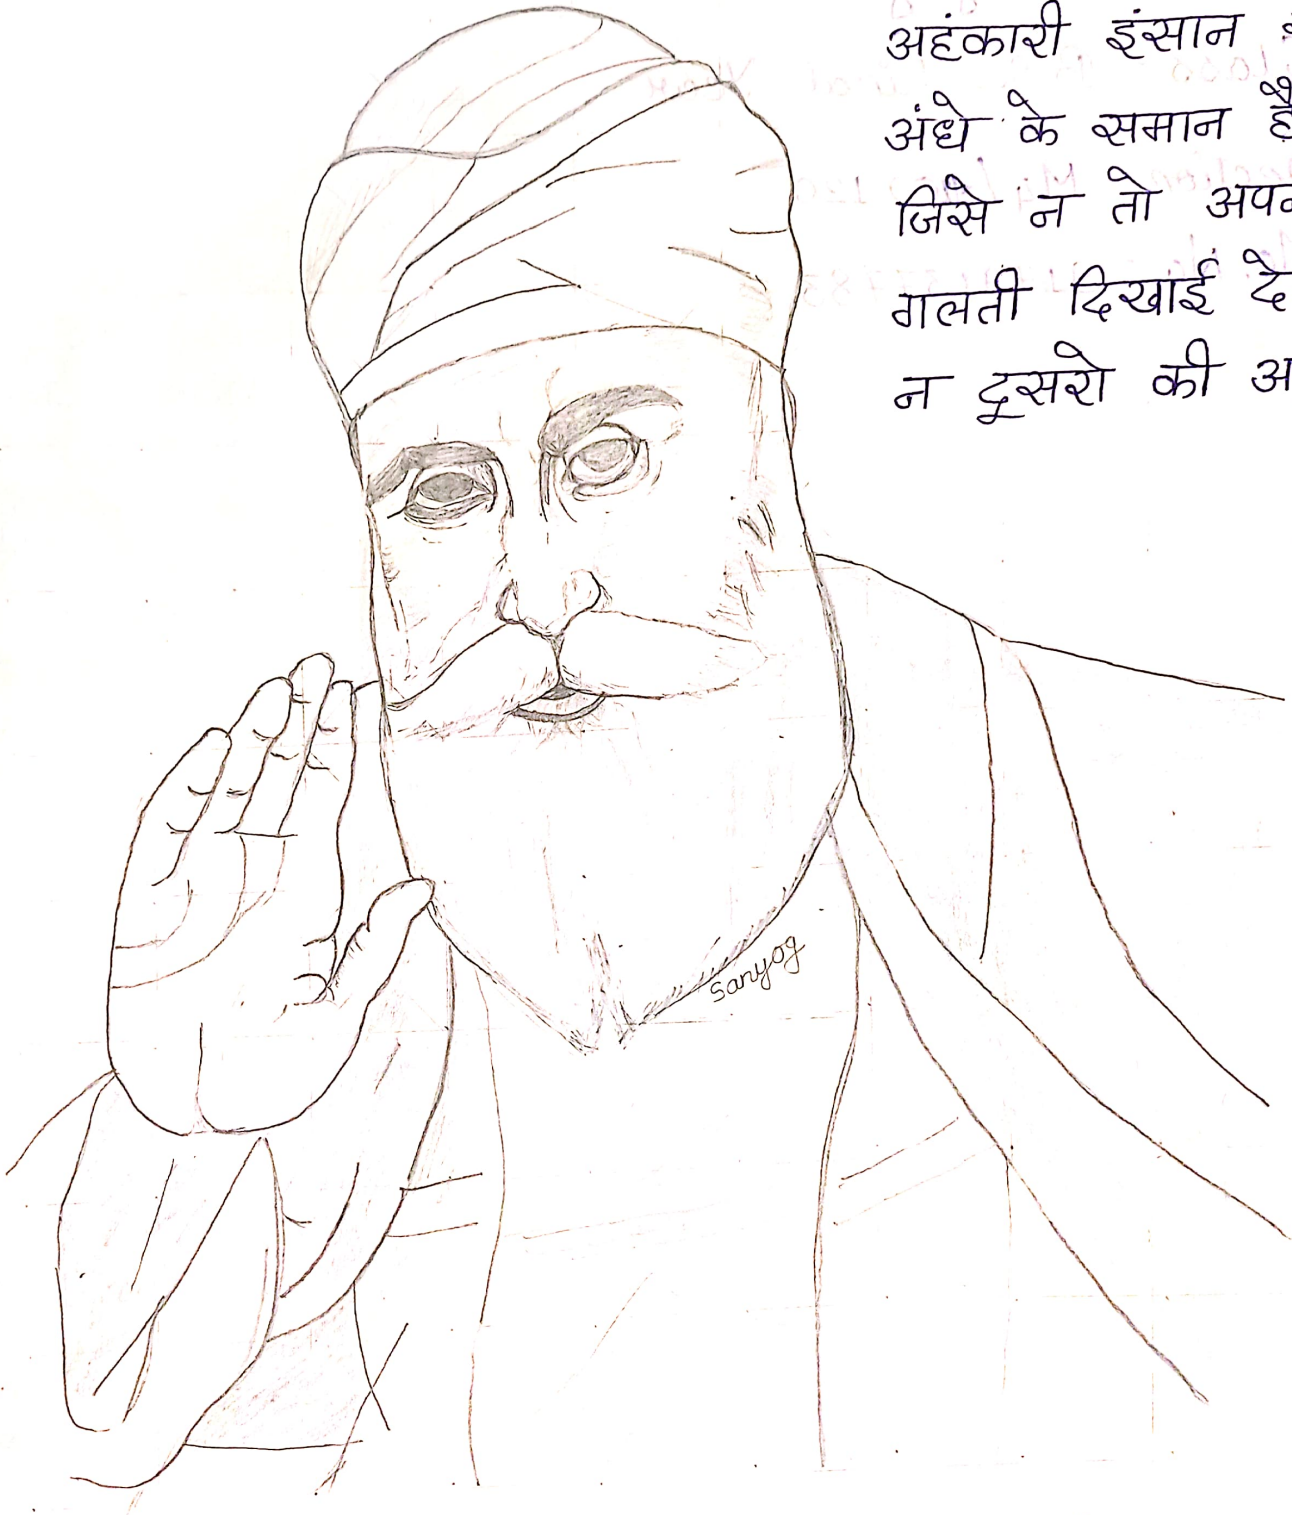 अहंकारी इंसान
अंधे के समान है
जिसे न तो
गलती दिखाई
न दूसरो की
sanyog